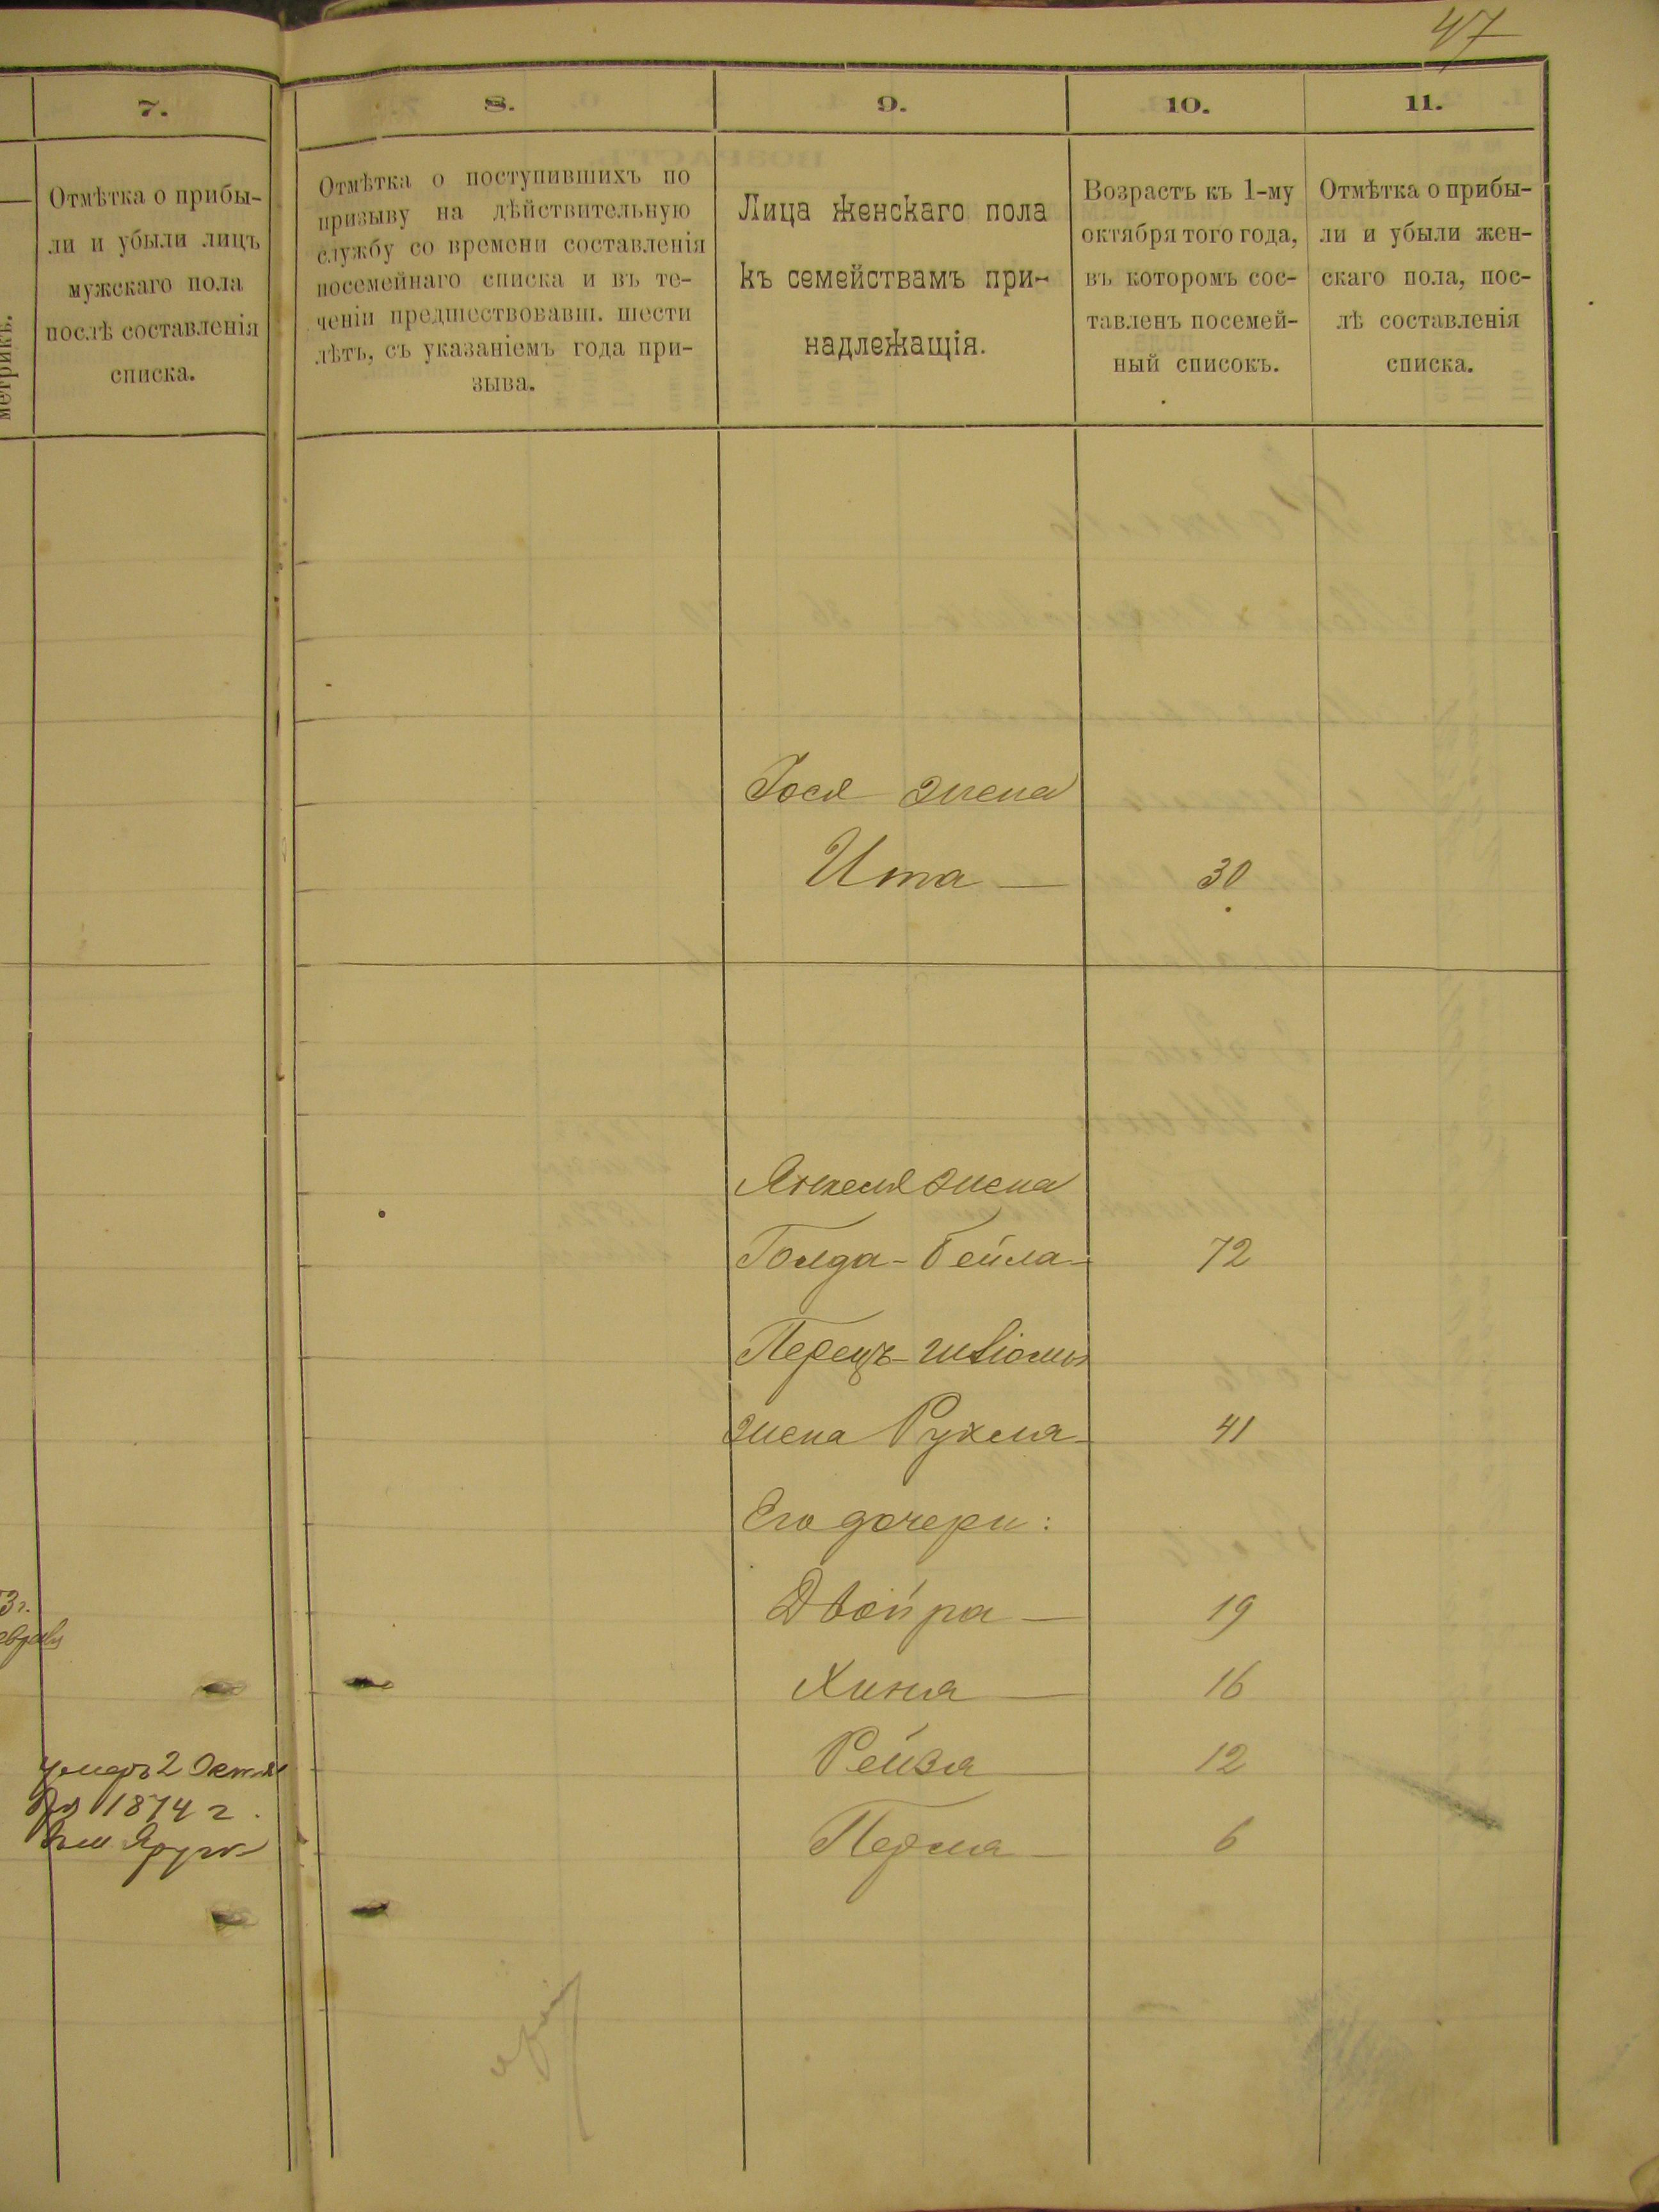 47
7.
8.
9.
10.
11.
Отмѣтка о прибы-
ли и убыли лицъ
мужскаго пола
послѣ составленія
списка.
Отмѣтка о поступившихъ по
призыву на дѣйствительную
службу со времени составленія
посемейнаго списка и въ те-
ченіи предшествовавш. шести
лѣтъ, съ указаніемъ года при-
зыва.
Лица женскаго пола
къ семействамъ при-
надлежащія.
Возрастъ къ 1-му
октября того года,
въ которомъ сос-
тавленъ посемей-
ный списокъ.
Отмѣтка о прибы-
ли и убыли жен-
скаго пола, пос-
лѣ составленія
списка.
метрикъ.
Іося жена
Ита — 30
Янкеля жена
Голда-Бейла- 72
Перецъ-
жена Рухля- 41
Его дочери:
Двойра — 19
Хиня — 16
Рейзя — 12
Перля — 6
3г.
умеръ 2 Октя
бря 1874 г.